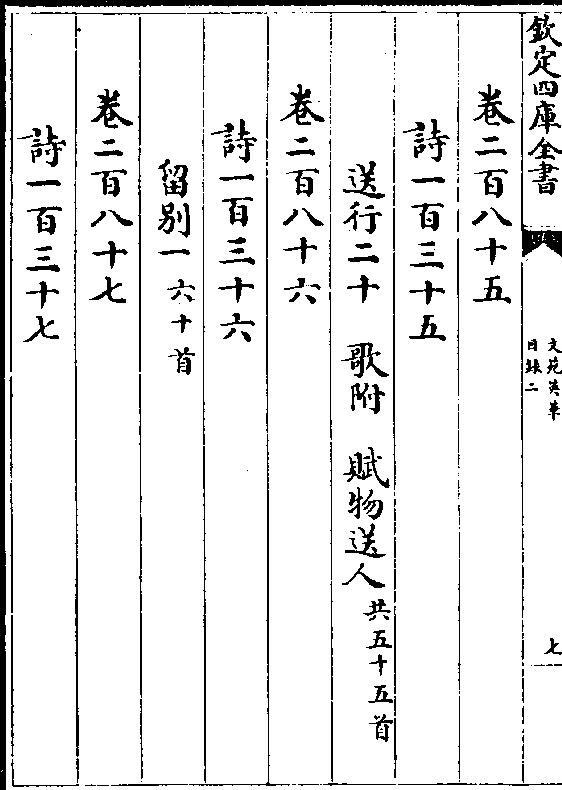 欽定四庫全書
文苑英華
目錄二
七
卷二百八十五
詩一百三十五
送行二十 歌附 賦物送人 共五十五首
卷二百八十六
詩一百三十六
留別一 六十首
卷二百八十七
詩一百三十七